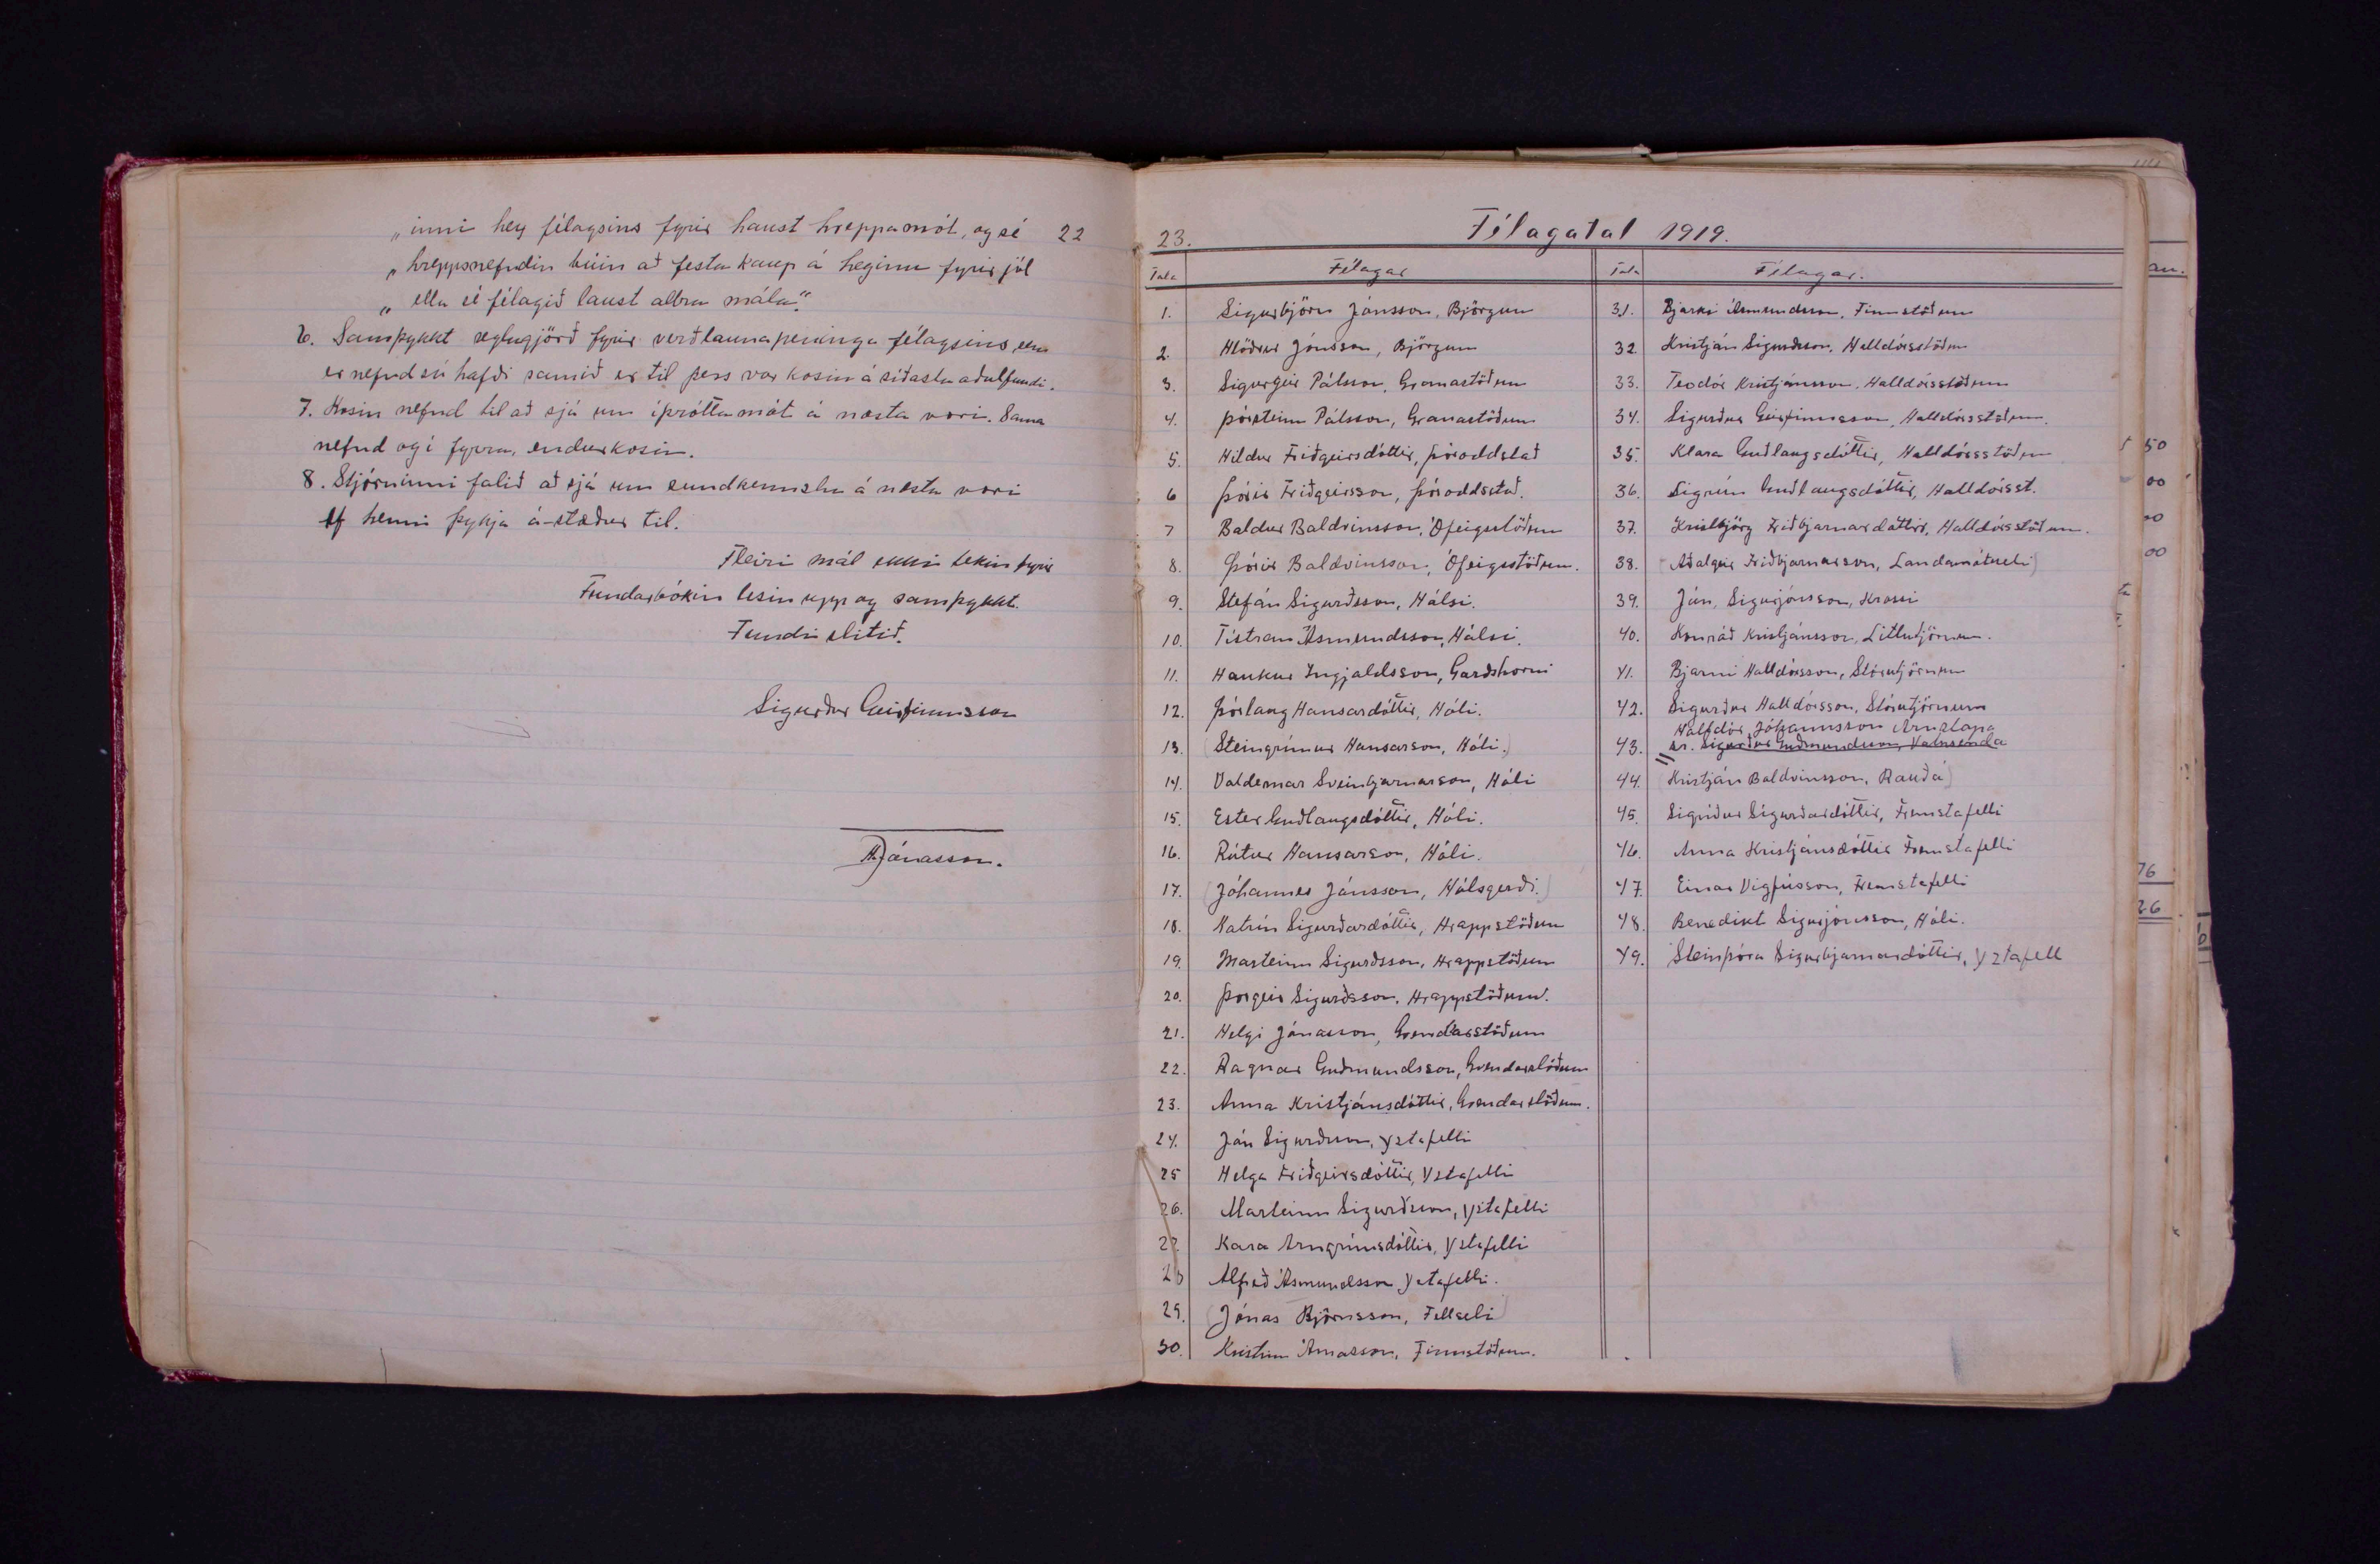 „inni hey félagsins fyrir haust hreppamót, og sé 22
„hreppsnefndin búin að festa kaup á heginu fyrir jól
„ella sé félagið laust allra mála".
6. Samþykkt reglugjörð fyrir verðlaunapeninga félagsins, sem
er nefnd sú hafði samið er til þess var kosin á síðasta aðalfundi.
7. Kosin nefnd til að sjá um íþróttamót á næsta vori. Sama
nefnd og í fyrra, endurkosin.
8. Stjórninni falið að sjá um sundkennslu á næsta vori
ef henni þykja á-stæður til.
Fleiri mál ekki tekin fyrir
Fundarbókin lesin upp og samþykkt.
Fundi slitið.
Sigurður Geirfinnsson
H. Jónasson.
23. Félagatal 1919.
Tala Félagar
1. Sigurbjörn Jónsson, Björgum
2. Hlöðver Jónsson, Björgum
3. Sigurgeir Pálsson, Granastöðum
4. Þórsteinn Pálsson, Granastöðum
5. Hildur Friðgeirsdóttir, Þóroddstað
6 Þórir Friðgeirsson, Þóroddstað.
7 Baldur Baldvinsson, Ófeigsstöðum
8. Þórir Baldvinsson, Ófeigsstöðum.
9. Stefán Sigurðsson, Hálsi.
10. Tístram Ásmundsson, Hálsi.
11. Haukur Ingjaldsson, Garðshorni
12. Þórlaug Hansardóttir, Hóli.
13. (Steingrímur Hansarson, Hóli.)
14. Valdemar Sveinbjarnarson, Hóli
15. Ester Guðlaugsdóttir, Hóli.
16. Rútur Hansarson, Hóli.
17. (Jóhannes Jónsson, Hálsgerði.)
18. Katrín Sigurðardóttir, Hrappstöðum
19. Marteinn Sigurðsson, Hrappstöðum
20. Þorgeir Sigurðsson, Hrappstöðum.
21. Helgi Jónasson, Gvendarstöðum
22. Ragnar Guðmundsson, Gvendarstöðum
23. Anna Kristjánsdóttir, Gvendarstöðum.
24. Jón Sigurðsson, Yztafelli
25 Helga Friðgeirsdóttir, Yztafelli
26. Marteinn Sigurðsson, Yztafelli
27. Kara Arngrímsdóttir, Yztafelli
28 Alfreð Ásmundsson Yztafelli.
29. (Jónas Björnsson, Fellseli)
30. Kristinn Ámasson, Finnstöðum.
Tala Félagar.
31. Bjarki Ásmundsson, Finnstöðum
32. Kristján Sigurðsson, Halldórsstöðum
33. Teodór Kristjánsson, Halldórsstöðum
34. Sigurður Geirfinnsson, Halldórsstöðum.
35. Klara Guðlaugsdóttir, Halldórsstöðum
36. Sigrún Guðlaugsdóttir, Halldórsst.
37. Kristbjörg Friðbjarnardóttir, Halldórsstöðum.
38. (Aðalgeir Friðbjarnarson, Landamótsseli)
39. Jón Sigurjónsson, Krossi
40. Konráð Kristjánsson, Litlutjörnum.
41. Bjarni Halldórsson, Stórutjörnum
42. Sigurður Halldórsson, Stórutjörnum
Halldór Jóhannsson Arnstapa
43. sr. Sigurður Guðmundsson, Vatnsenda
44. (Kristján Baldvinsson, Rauðá)
45. Sigríður Sigurðardóttir, Fremstafelli
46. Anna Kristjánsdóttir Fremstafelli
47. Einar Vigfússon, Fremstafelli
48. Benedikt Sigurjónsson, Hóli.
49. Steinþóra Sigurbjarnardóttir, Yztafell
50
00
00
00
76
26